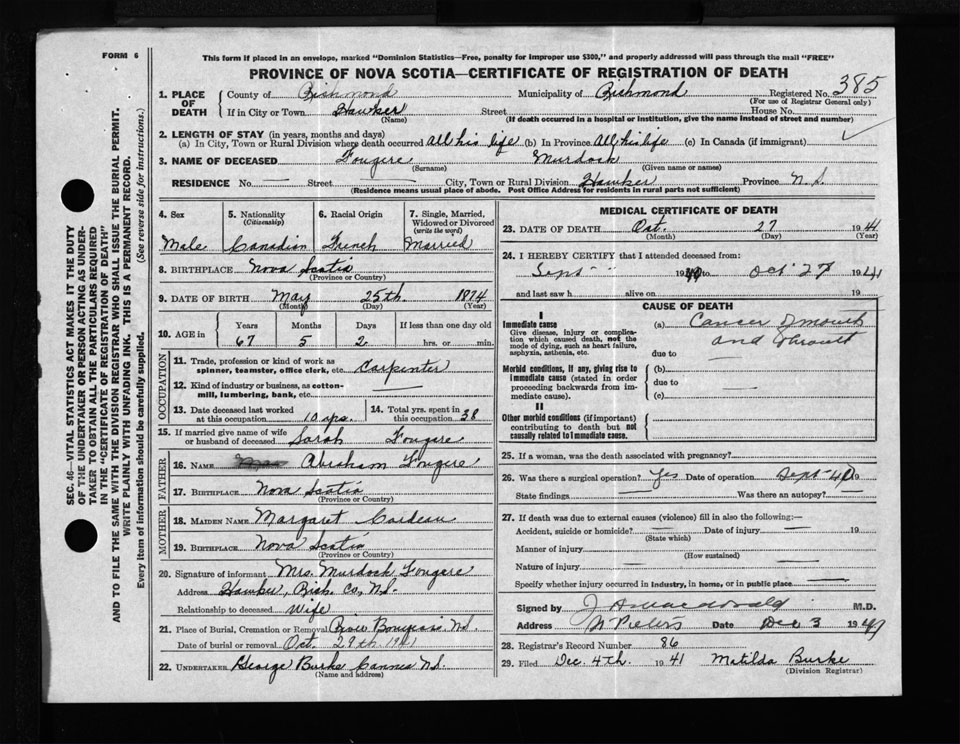 FORM 6
This form if placed in an envelope, marked "Dominion Statistics—Free, penalty for improper use $300," and properly addressed will pass through the mail "FREE"
PROVINCE OF NOVA SCOTIA—CERTIFICATE OF REGISTRATION OF DEATH
385
1. PLACE OF DEATH County of Richmond Municipality of Richmond Registered No.
(For use of Registrar General only)
If in City or Town Hawker Street House No.
(Name) (If death occurred in a hospital or institution, give the name instead of street and number)
2. LENGTH OF STAY (in years, months and days)
(a) In City, Town or Rural Division where death occurred All his life (b) In Province All his life (c) In Canada (if immigrant)
3. NAME OF DECEASED Fougere Murdock
(Surname) (Given name or names)
RESIDENCE No. — Street — City, Town or Rural Division Hawker Province N.S.
(Residence means usual place of abode. Post Office Address for residents in rural parts not sufficient)
4. Sex 5. Nationality (Citizenship) 6. Racial Origin 7. Single, Married, Widowed or Divorced (write the word)
Male Canadian French Married
8. BIRTHPLACE Nova Scotia
(Province or Country)
9. DATE OF BIRTH May 25th. 1874
(Month) (Day) (Year)
10. AGE in Years Months Days If less than one day old
67 5 2 hrs. or min.
OCCUPATION
11. Trade, profession or kind of work as spinner, teamster, office clerk, etc. Carpenter
12. Kind of industry or business, as cotton-mill, lumbering, bank, etc.
13. Date deceased last worked at this occupation 10 yrs. 14. Total yrs. spent in this occupation 38
15. If married give name of wife or husband of deceased Sarah Fougere
FATHER
16. NAME Abraham Fougere
17. BIRTHPLACE Nova Scotia
(Province or Country)
MOTHER
18. MAIDEN NAME Margaret
19. BIRTHPLACE Nova Scotia
(Province or Country)
20. Signature of informant Mrs. Murdock Fougere
Address Hawker, Rich. Co., N.S.
Relationship to deceased Wife
21. Place of Burial, Cremation or Removal N.S.
Date of burial or removal Oct. 29th. 1941
22. UNDERTAKER George Burke Cannes N.S.
(Name and address)
MEDICAL CERTIFICATE OF DEATH
23. DATE OF DEATH Oct. 27 1941
(Month) (Day) (Year)
24. I HEREBY CERTIFY that I attended deceased from:
Sept 1940 to Oct 27 1941
and last saw h alive on 19
CAUSE OF DEATH
I
Immediate cause
Give disease, injury or complication which caused death, not the mode of dying, such as heart failure, asphyxia, asthenia, etc.
(a) Cancer of mouth
and throat
due to —
Morbid conditions, if any, giving rise to immediate cause (stated in order proceeding backwards from immediate cause).
(b)
due to —
(c)
II
Other morbid conditions (if important) contributing to death but not causally related to immediate cause.
25. If a woman, was the death associated with pregnancy?
26. Was there a surgical operation? Yes Date of operation Sept 40 19
State findings — Was there an autopsy? —
27. If death was due to external causes (violence) fill in also the following:—
Accident, suicide or homicide? — Date of injury — 19
(State which)
Manner of injury
(How sustained)
Nature of injury —
Specify whether injury occurred in industry, in home, or in public place —
Signed by M.D.
Address St Peters Date Dec 3 1941
28. Registrar's Record Number 86
29. Filed Dec. 4th. 1941 Matilda Burke
(Division Registrar)
SEC. 46—VITAL STATISTICS ACT MAKES IT THE DUTY
OF THE UNDERTAKER OR PERSON ACTING AS UNDER-
TAKER TO OBTAIN ALL THE PARTICULARS REQUIRED
IN THE "CERTIFICATE OF REGISTRATION OF DEATH"
AND TO FILE THE SAME WITH THE DIVISION REGISTRAR WHO SHALL ISSUE THE BURIAL PERMIT.
WRITE PLAINLY WITH UNFADING INK. THIS IS A PERMANENT RECORD.
Every item of information should be carefully supplied. (See reverse side for instructions.)